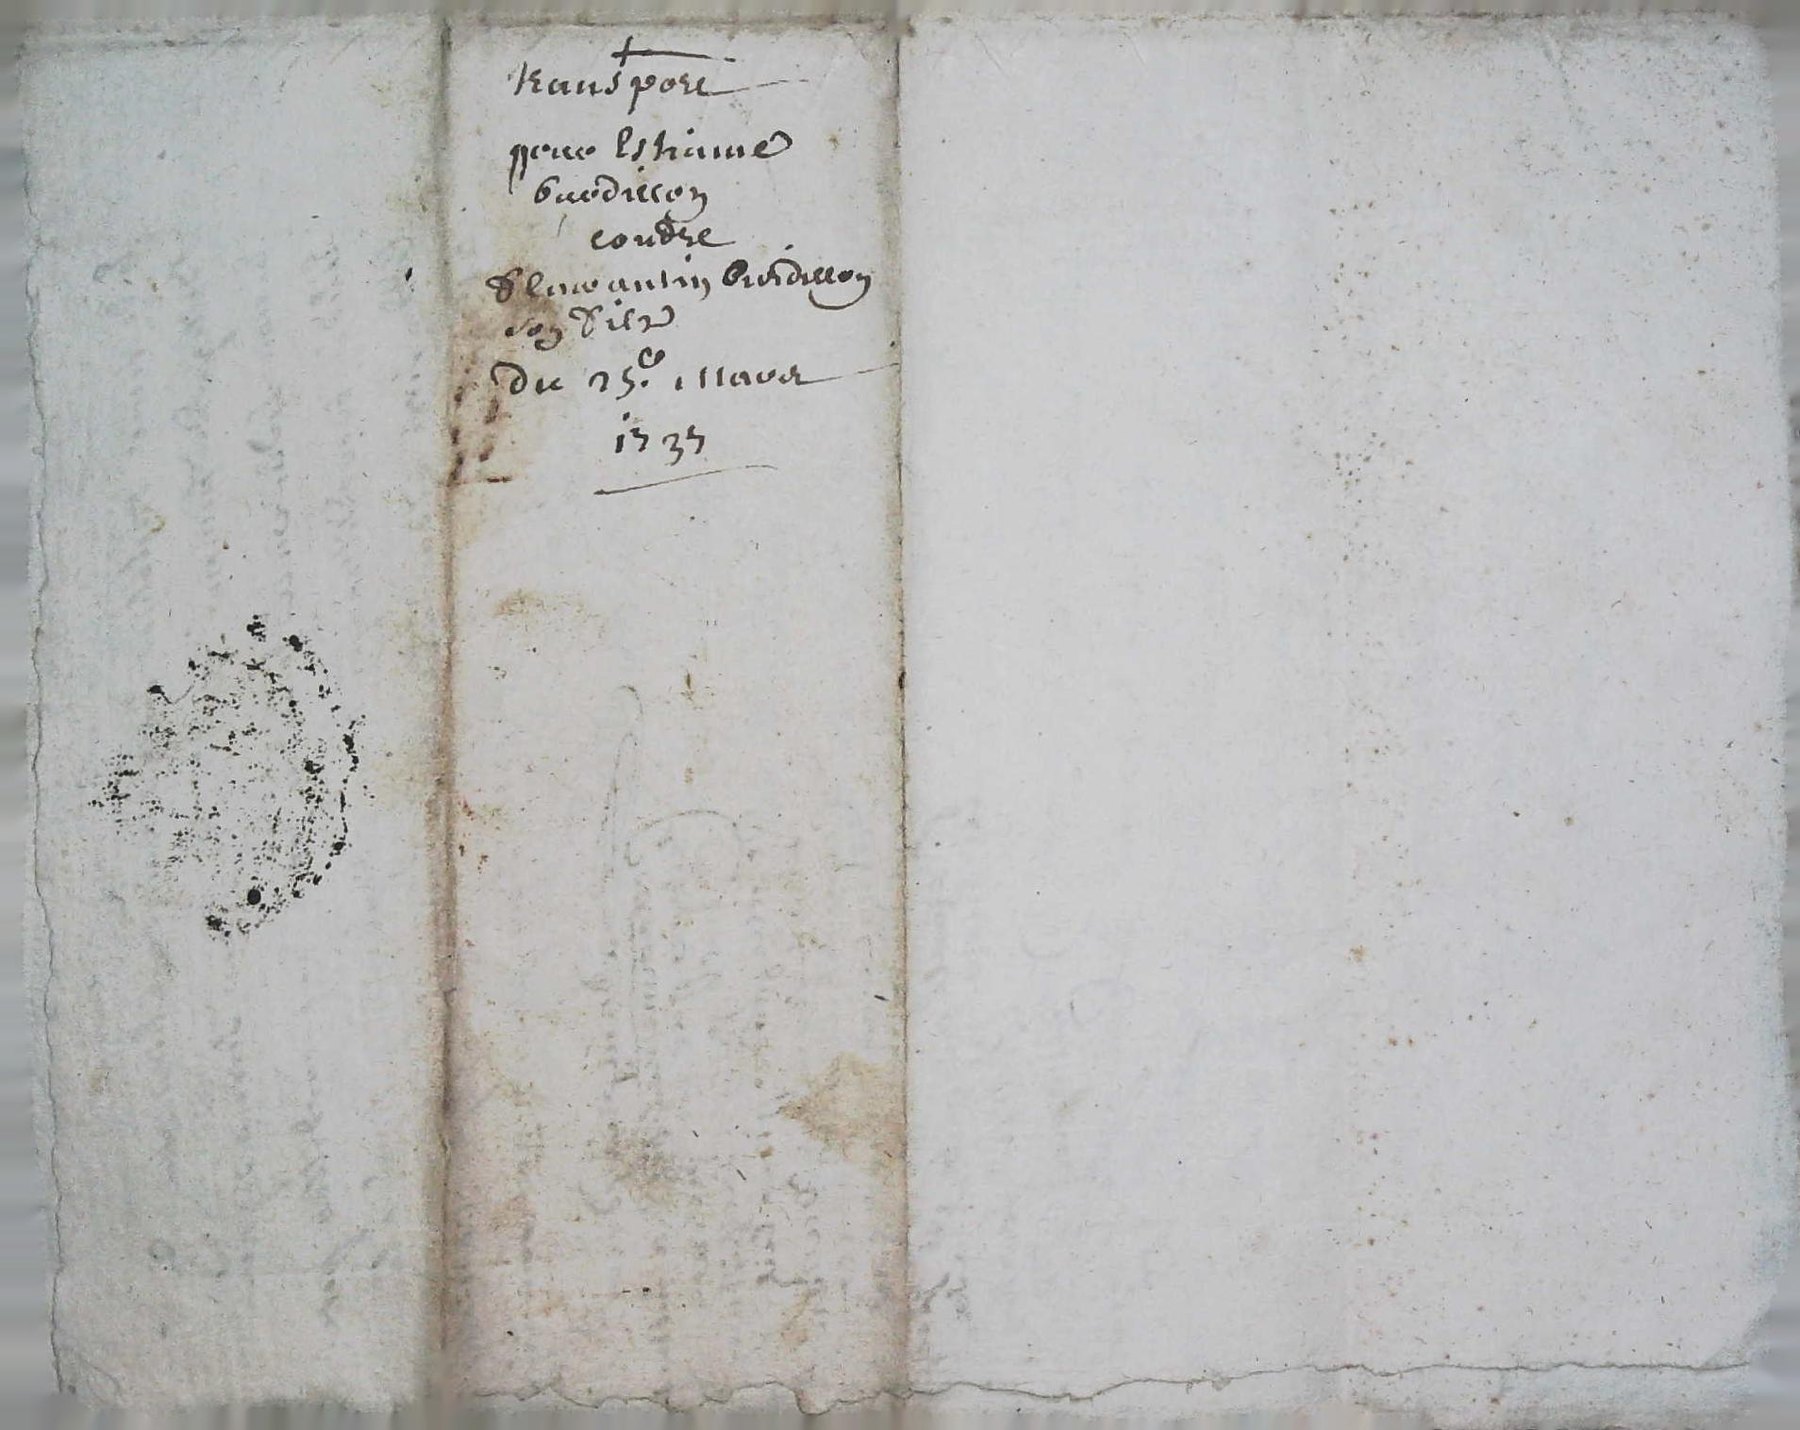 transport
pour Estienne
Bourdillon
contre
Florantin Bourdillon
son filz
Du 25e Mars
1535